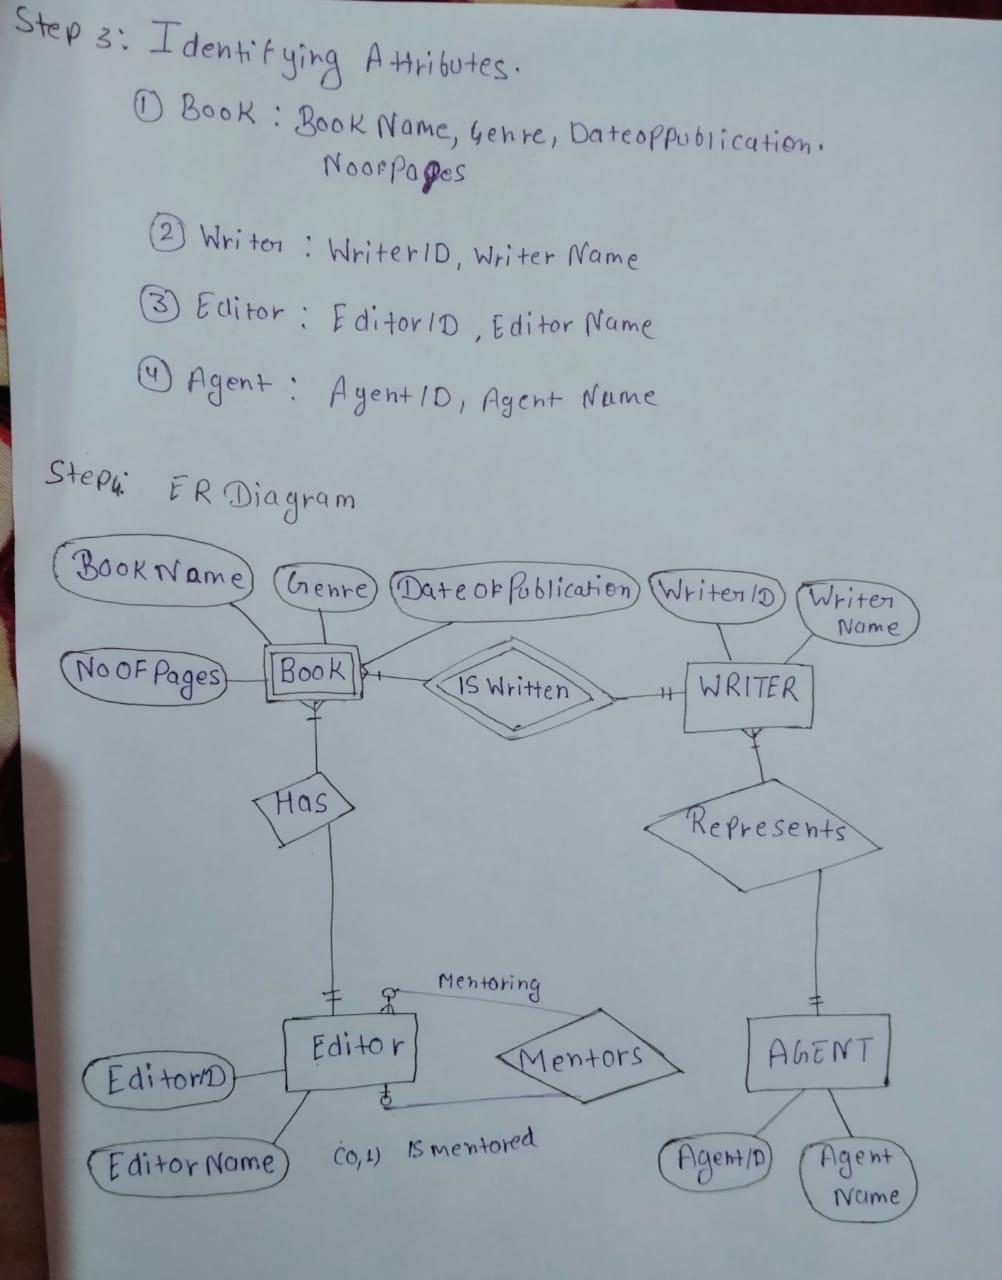 Step 3: Identifying Attributes.
① Book : Book Name, Genre, DateofPublication.
NoofPages
② Writer : WriterID, Writer Name
③ Editor : EditorID, Editor Name
④ Agent : AgentID, Agent Name
Step4: ER Diagram
Book Name
Genre
Date of Publication
WriterID
Writer
Name
No OF Pages
Book
IS Written
WRITER
Has
Represents
Mentoring
Editor
Mentors
AGENT
EditorID
Editor Name
(0,1) IS mentored
AgentID
Agent
Name